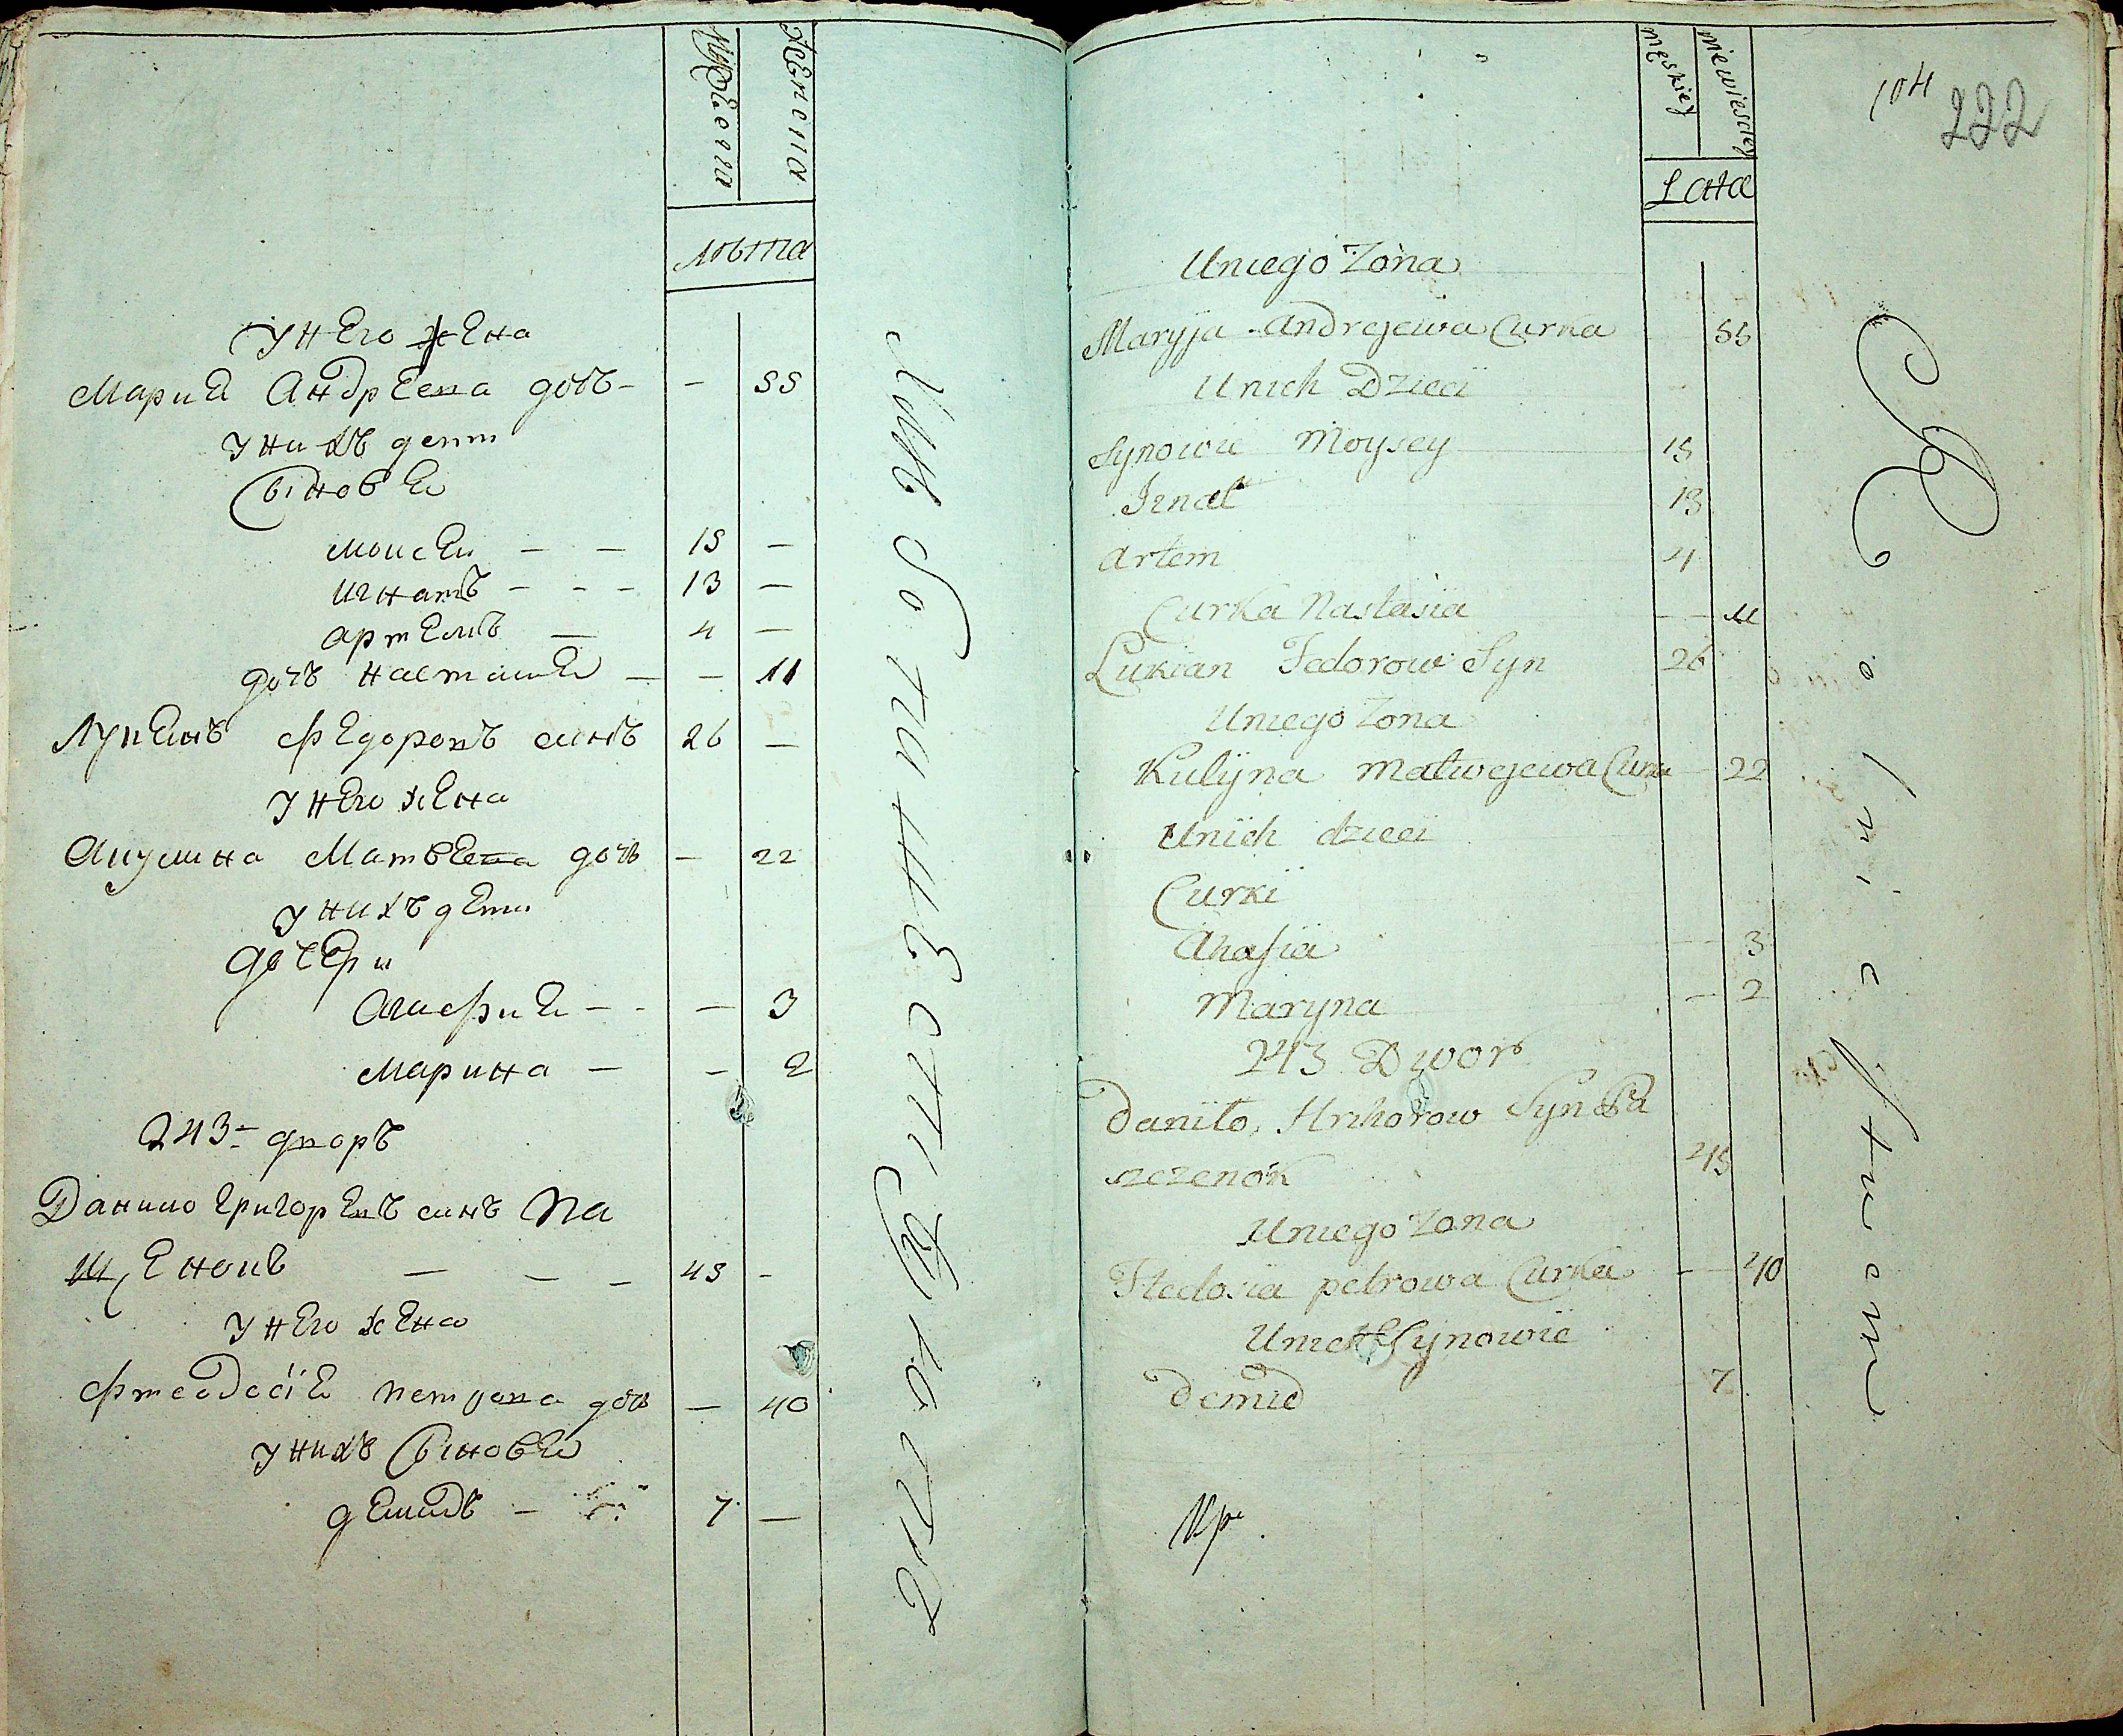 Мужеска
Женска
лѣтта
У Него жена
Мария Андреева дочъ - - 55
У нихъ дети
Сыновя
Моисеи - - 15 -
Игнатъ - - - 13 -
Артемъ - 4 -
дочъ Настасия - - 11
Лукянъ Федоровъ синъ 26 -
У Него жена
Акулина Матвеева дочъ - 22
У нихъ дети
дочери
Агафия - - - 3
Марина - - 2
243- дворъ
Данило Григоревъ синъ Па
щенокъ - - - 45 -
У Него жена
Фтеодосія Петрова дочъ - 40
У нихъ Сыновя
демидъ - 7 -
męskiey
niewiesciey
Lata
104
222
Uniego Zona
Maryja Andrejewa Curka 55
Unich Dzieci
Synowie Moysey 15
Ihnat 13
Artem 4
Curka Nastasia - - 11
Lukian Fedorow Syn 26
Uniego Zona
Kulijna Matwejewa Curka - 22
Unich dzieci
Curki
Ahafia - 3
Maryna - 2
243 Dwor
Daniło Hrihorow Syn Pa
szczenok 45
Uniego Zona
Ftedosia petrowa Curka - 40
Unich Synowie
Demid 7